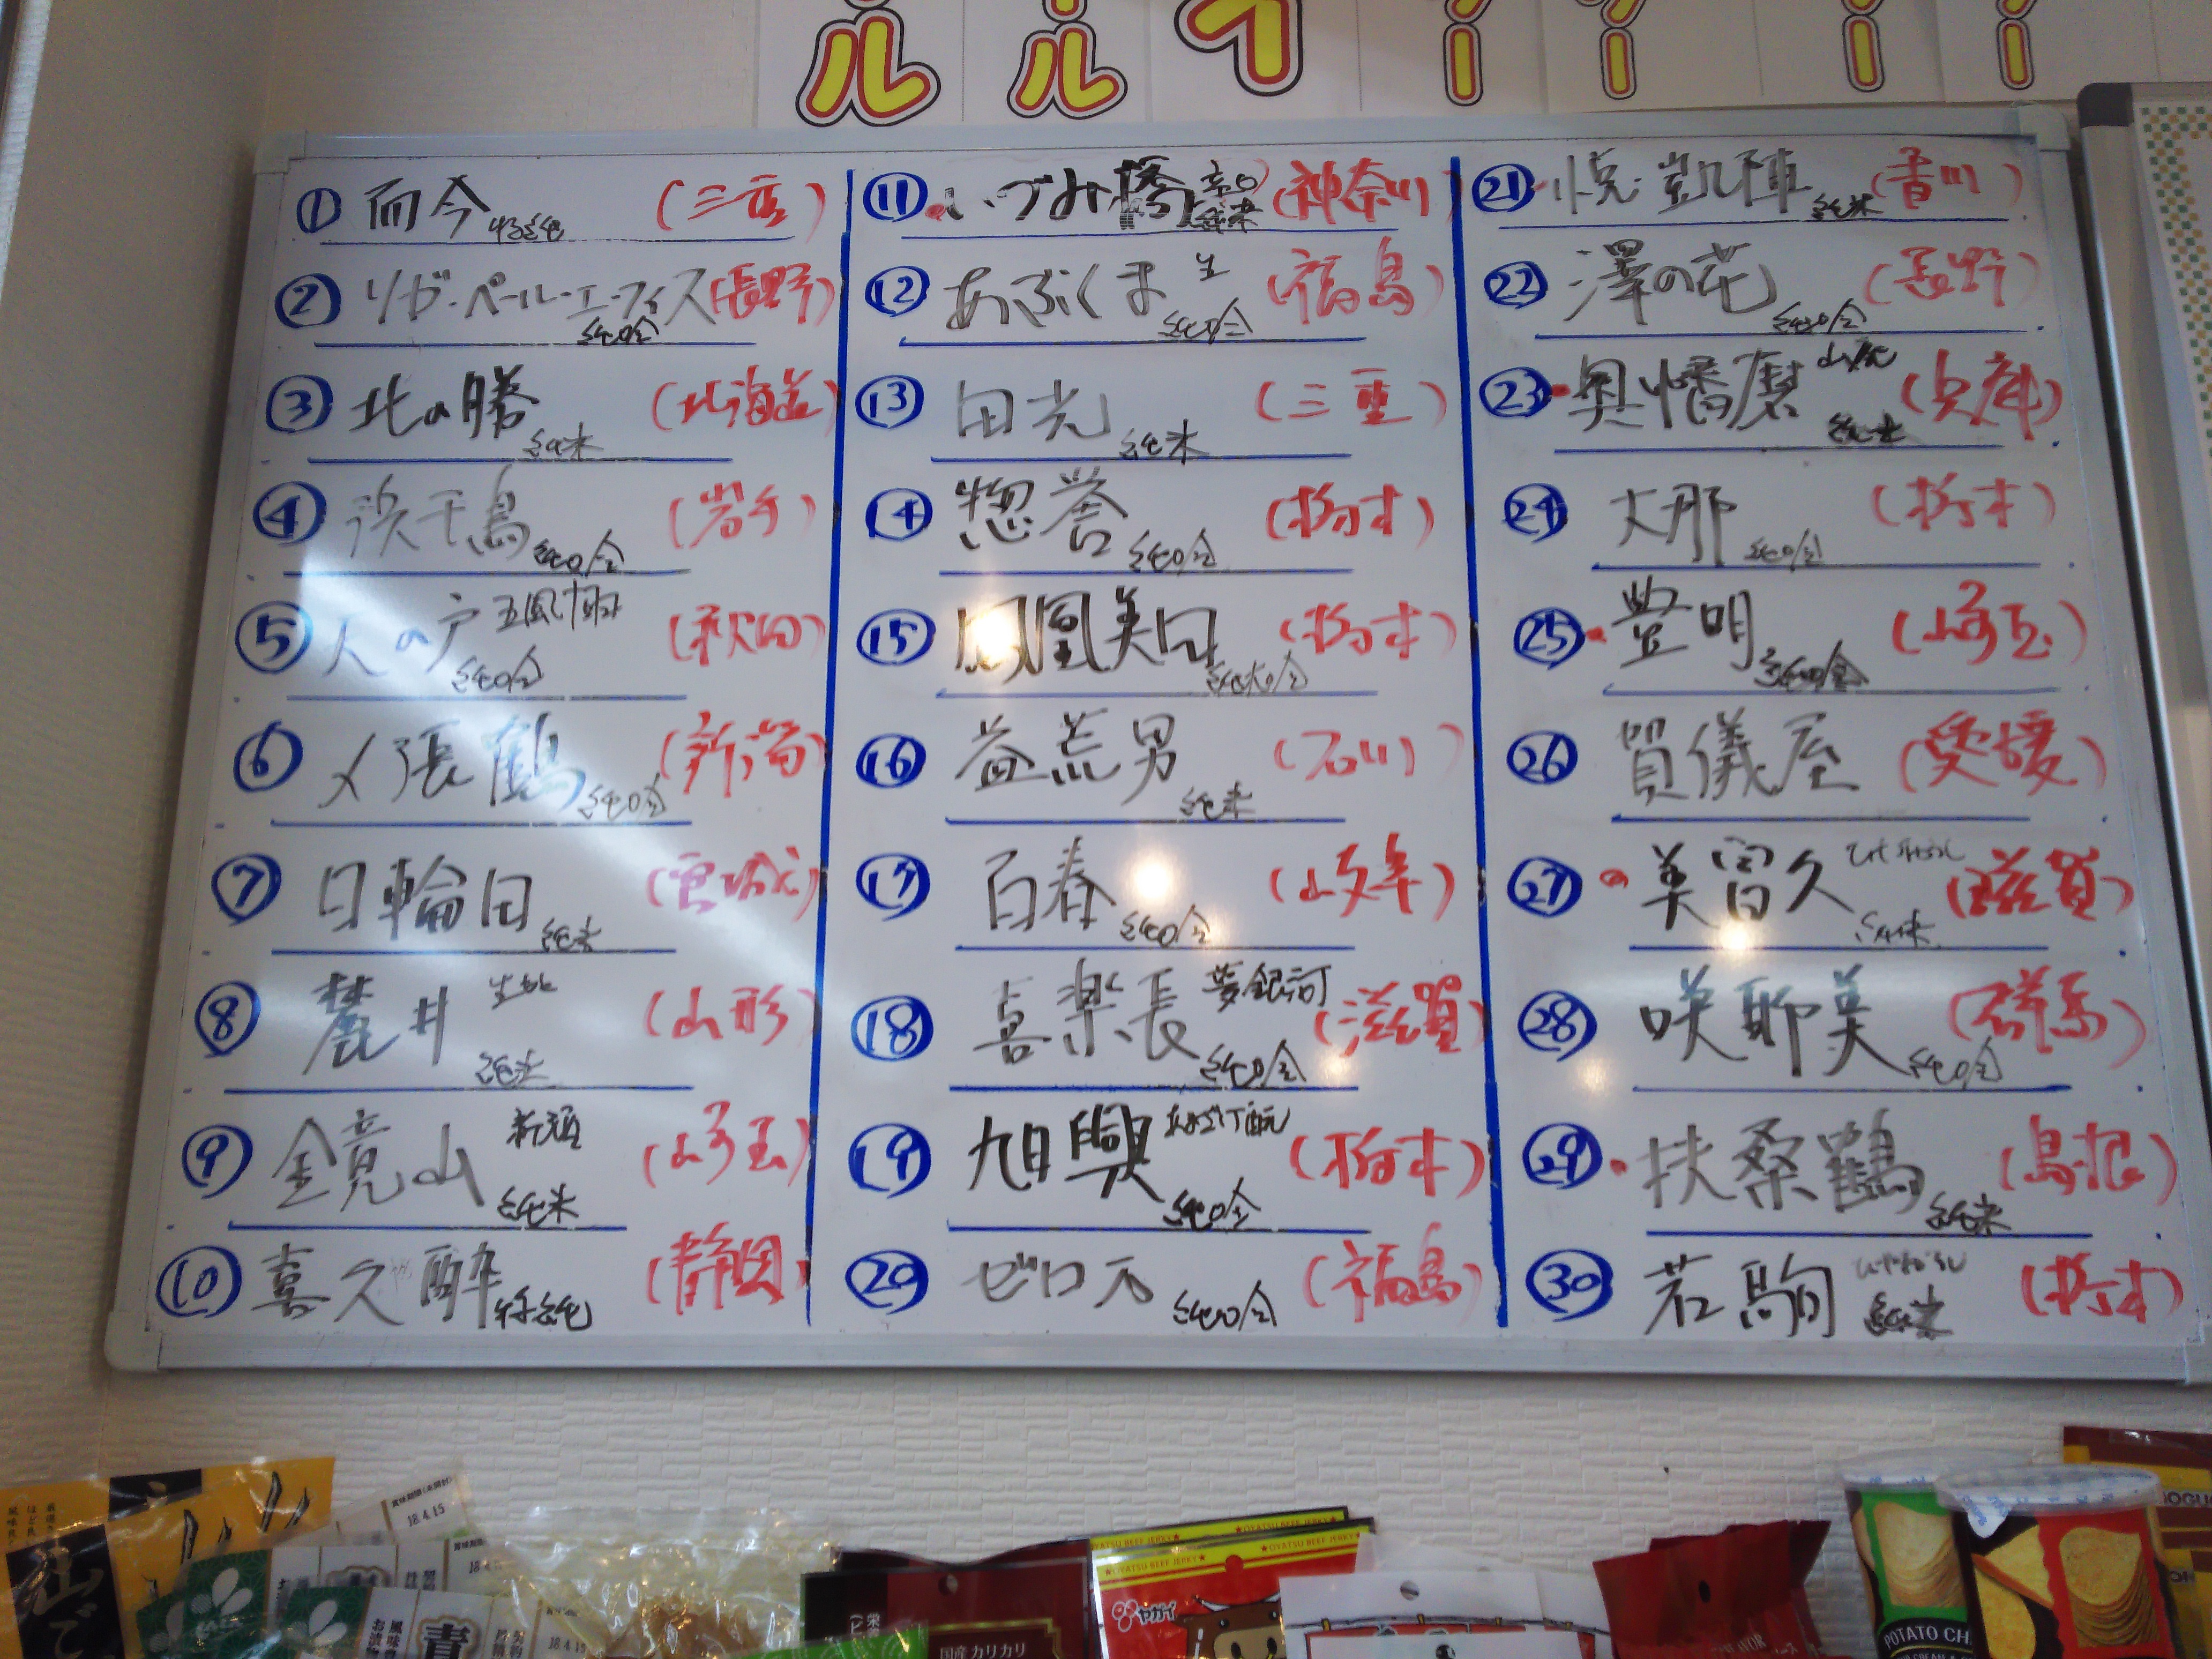 ① 而今 特純 (三重)
② リガ・ペール・エーフィス 純吟 (長野)
③ 北の勝 純米 (北海道)
④ 浜千鳥 純吟 (岩手)
⑤ 天の戸 五風十雨 純吟 (秋田)
⑥ 〆張鶴 純吟 (新潟)
⑦ 日輪田 純米 (宮城)
⑧ 麓井 生酛 純米 (山形)
⑨ 金亮山 純米 (埼玉)
⑩ 喜久酔 特純 (静岡)
⑪ いづみ橋 辛口 純米 (神奈川)
⑫ あぶくま 生 純吟 (福島)
⑬ 田光 純米 (三重)
⑭ 惣誉 純吟 (栃木)
⑮ 鳳凰美田 純米吟 (栃木)
⑯ 益荒男 純米 (石川)
⑰ 百春 純吟 (岐阜)
⑱ 喜楽長 夢銀河 純吟 (滋賀)
⑲ 旭興 純吟 (栃木)
⑳ ゼロ万 純吟 (福島)
㉑ 悦凱陣 純米 (香川)
㉒ 澤の花 純吟 (長野)
㉓ 奥幡磨 山廃 純米 (兵庫)
㉔ 大那 純吟 (栃木)
㉕ 豊明 純吟 (埼玉)
㉖ 賀儀屋 (愛媛)
㉗ 美冨久 ひやおろし 純米 (滋賀)
㉘ 咲耶美 純吟 (群馬)
㉙ 扶桑鶴 純米 (島根)
㉚ 若駒 ひやおろし 純米 (栃木)
18.4.15
OYATSU BEEF JERKY
ヤガイ
国産カリカリ
POTATO CH